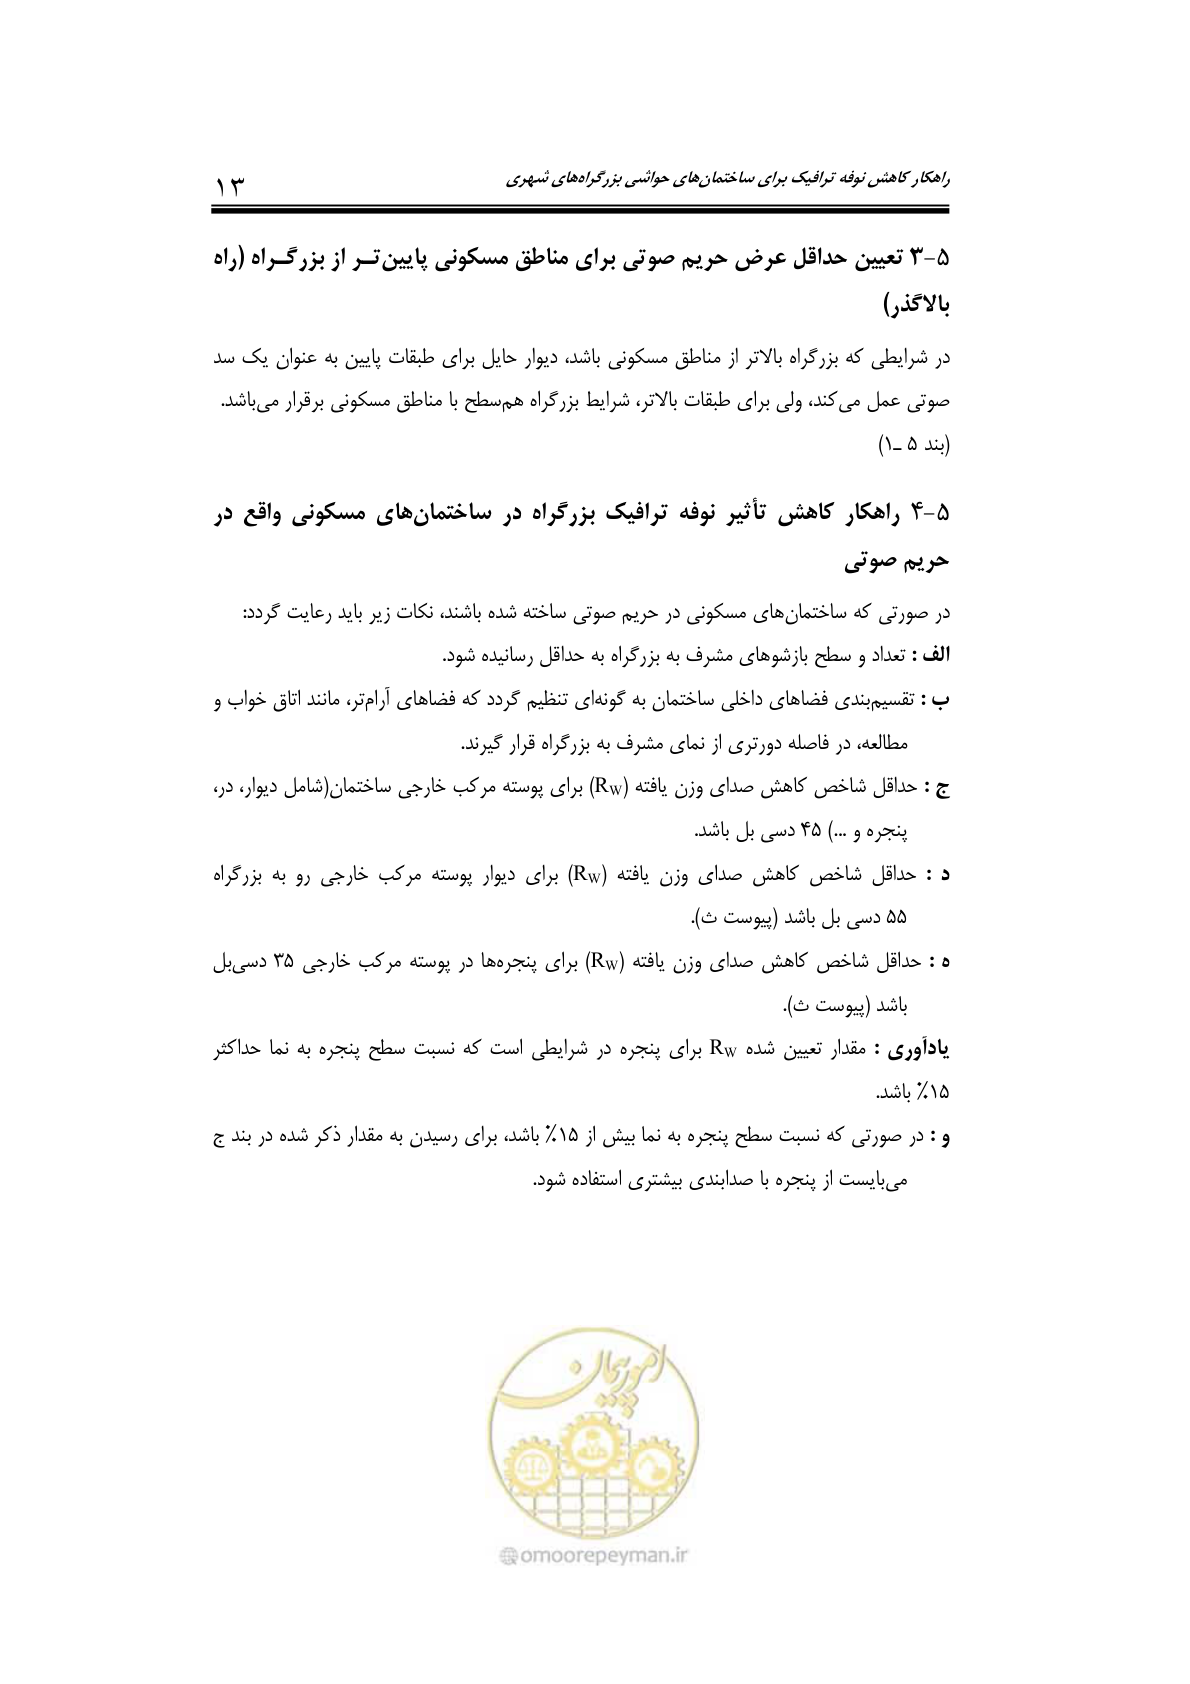 راهکار کاهش نوفه ترافیک برای ساختمان‌های حواشی بزرگراه‌های شهری
۱۳
۵-۳ تعیین حداقل عرض حریم صوتی برای مناطق مسکونی پایین‌تـر از بزرگـراه (راه
بالاگذر)
در شرایطی که بزرگراه بالاتر از مناطق مسکونی باشد، دیوار حایل برای طبقات پایین به عنوان یک سد
صوتی عمل می‌کند، ولی برای طبقات بالاتر، شرایط بزرگراه هم‌سطح با مناطق مسکونی برقرار می‌باشد.
(بند ۵ ـ۱)
۵-۴ راهکار کاهش تأثیر نوفه ترافیک بزرگراه در ساختمان‌های مسکونی واقع در
حریم صوتی
در صورتی که ساختمان‌های مسکونی در حریم صوتی ساخته شده باشند، نکات زیر باید رعایت گردد:
الف : تعداد و سطح بازشوهای مشرف به بزرگراه به حداقل رسانیده شود.
ب : تقسیم‌بندی فضاهای داخلی ساختمان به گونه‌ای تنظیم گردد که فضاهای آرام‌تر، مانند اتاق خواب و
مطالعه، در فاصله دورتری از نمای مشرف به بزرگراه قرار گیرند.
ج : حداقل شاخص کاهش صدای وزن یافته (RW) برای پوسته مرکب خارجی ساختمان(شامل دیوار، در،
پنجره و ...) ۴۵ دسی بل باشد.
د : حداقل شاخص کاهش صدای وزن یافته (RW) برای دیوار پوسته مرکب خارجی رو به بزرگراه
۵۵ دسی بل باشد (پیوست ث).
ه : حداقل شاخص کاهش صدای وزن یافته (RW) برای پنجره‌ها در پوسته مرکب خارجی ۳۵ دسی‌بل
باشد (پیوست ث).
یادآوری : مقدار تعیین شده RW برای پنجره در شرایطی است که نسبت سطح پنجره به نما حداکثر
۱۵٪ باشد.
و : در صورتی که نسبت سطح پنجره به نما بیش از ۱۵٪ باشد، برای رسیدن به مقدار ذکر شده در بند ج
می‌بایست از پنجره با صدابندی بیشتری استفاده شود.
امور پیمان
omoorepeyman.ir